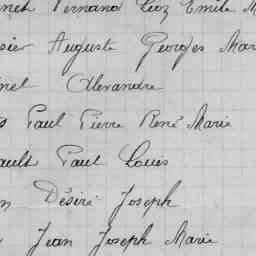 Fernand Léoz Emile M
sier Auguste Georges Mar
nel Alexandre
Paul Pierre René Marie
ault Paul Louis
n Désiré Joseph
Jean Joseph Marie